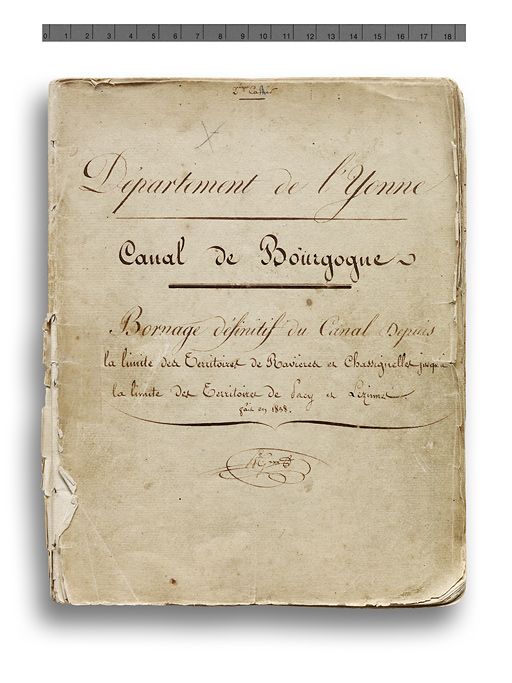 0 1 2 3 4 5 6 7 8 9 10 11 12 13 14 15 16 17 18
Département de l'Yonne
Canal de Bourgogne
Bornage définitif du Canal Depuis
la limite des Territoires de Ravières et Chassignelles jusqu'à
la limite des Territoires de Pacy et Lezinnes
fait en 1838.